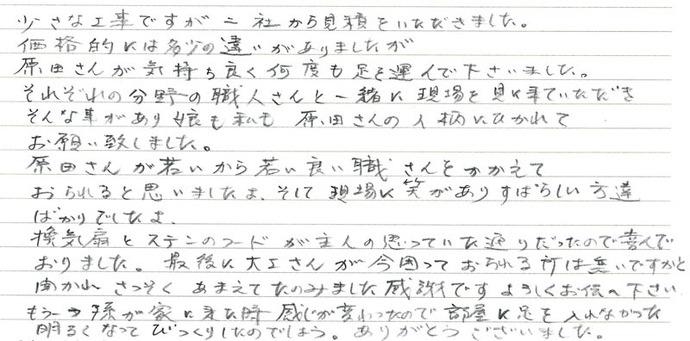 少さな工事ですが二社から見積をいただきました。
価格的には多少の違いがありましたが
原田さんが気持ち良く何度も足を運んで下さいました。
それぞれの分野の職人さんと一緒に現場を見に来ていただき
そんな事があり娘も私も原田さんの人柄にひかれて
お願い致しました。
原田さんが若いから若い良い職さんをかかえて
おられると思いましたよ、そして現場に笑がありすばらしい方達
ばかりでしたよ、
換気扇とステンのフードが主人の思っていた通りだったので喜んで
おりました。最後に大工さんが今困っておられる所は無いですかと
聞かれさっそくあまえてたのみました感謝ですよろしくお伝へ下さい
もう一つ孫が家に来た時感じが変わったので部屋に足を入れなかった
明るくなってびっくりしたのでしょう。ありがとうございました。